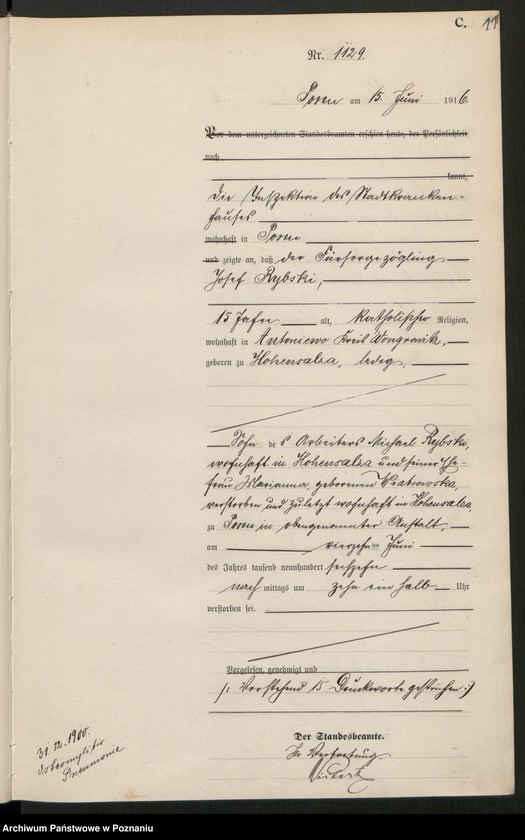 C. 11
Nr. 1129
Posen am 15. Juni 1916.
Vor dem unterzeichneten Standesbeamten erschien heute, der Persönlichkeit
nach
kannt,
die Inspektion des Stadtkranken-
hauses
wohnhaft in Posen
und zeigte an, daß der Fürsorgezögling
Josef Rybski,
15 Jahre alt, katholischer Religion,
wohnhaft in Antoniewo Kreis Wongrowitz,
geboren zu Hohensalza, ledig,
Sohn des Arbeiters Michael Rybski,
wohnhaft in Hohensalza und seiner Ehe-
frau Marianna, geborenen Wiatrowska,
verstorben und zuletzt wohnhaft in Hohensalza,
zu Posen in obengenannter Anstalt,
am vierzehnten Juni
des Jahres tausend neunhundert sechzehn
nachmittags um zehn ein halb Uhr
verstorben sei.
Vorgelesen, genehmigt und
/: Vorstehend 15 Druckworte gestrichen :/
Der Standesbeamte.
In Vertretung.
31.12.1900.
Pneumonie
Archiwum Państwowe w Poznaniu